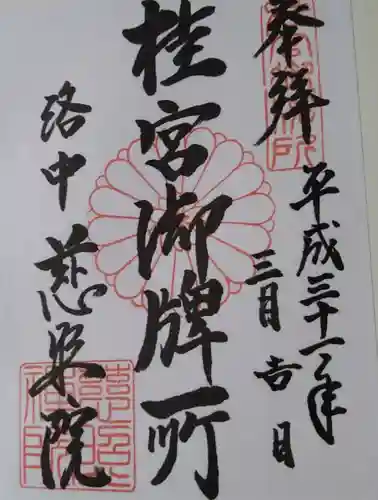 奉拝
平成三十一年
三月吉日
桂宮御牌所
洛中 慈照院